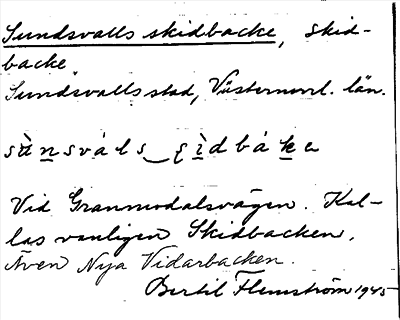 Sundsvalls skidbacke, skid-
backe
Sundsvalls stad, Västernorrl. län.
Vid Granmodalsvägen. Kal-
las vanligen Skidbacken.
Även Nya Vidarbacken.
Bertil Flemström 1945